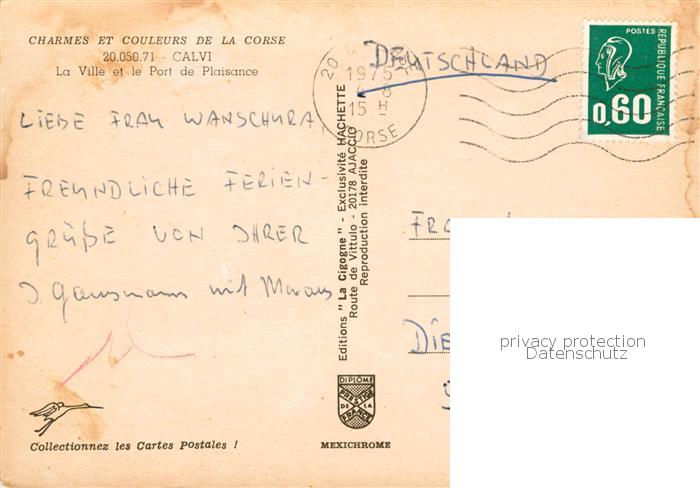 CHARMES ET COULEURS DE LA CORSE
20.050.71 - CALVI
La Ville et le Port de Plaisance
LIEBE FRAU WANSCHURA
FREUNDLICHE FERIEN-
GRÜßE VON IHRER
J. Gausmann mit
Collectionnez les Cartes Postales !
Editions "La Cigogne" - Exclusivité HACHETTE
Route de Vittulo - 20178 AJACCIO
Reproduction interdite
DIPLOME
PRESTIGE
DE LA
FRANCE
MEXICHROME
20
1975
15 H
CORSE
DEUTSCHLAND
POSTES
REPUBLIQUE FRANÇAISE
0,60
FRA
DIE
privacy protection
Datenschutz